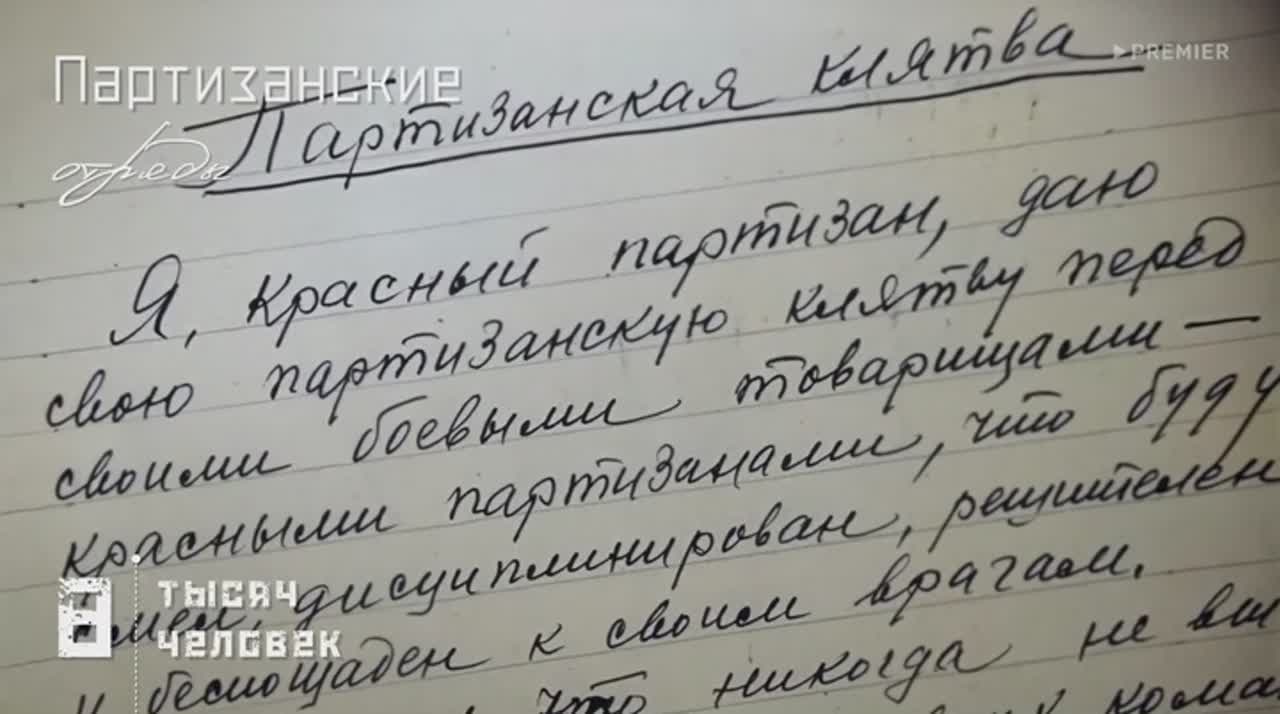 Партизанские
отряды
PREMIER
Партизанская клятва
Я, Красный партизан, даю
свою партизанскую клятву перед
своими боевыми товарищами —
красными партизанами, что буду
смел, дисциплинирован, решителен
и беспощаден к своим врагам.
что никогда не
8 ТЫСЯЧ
ЧЕЛОВЕК